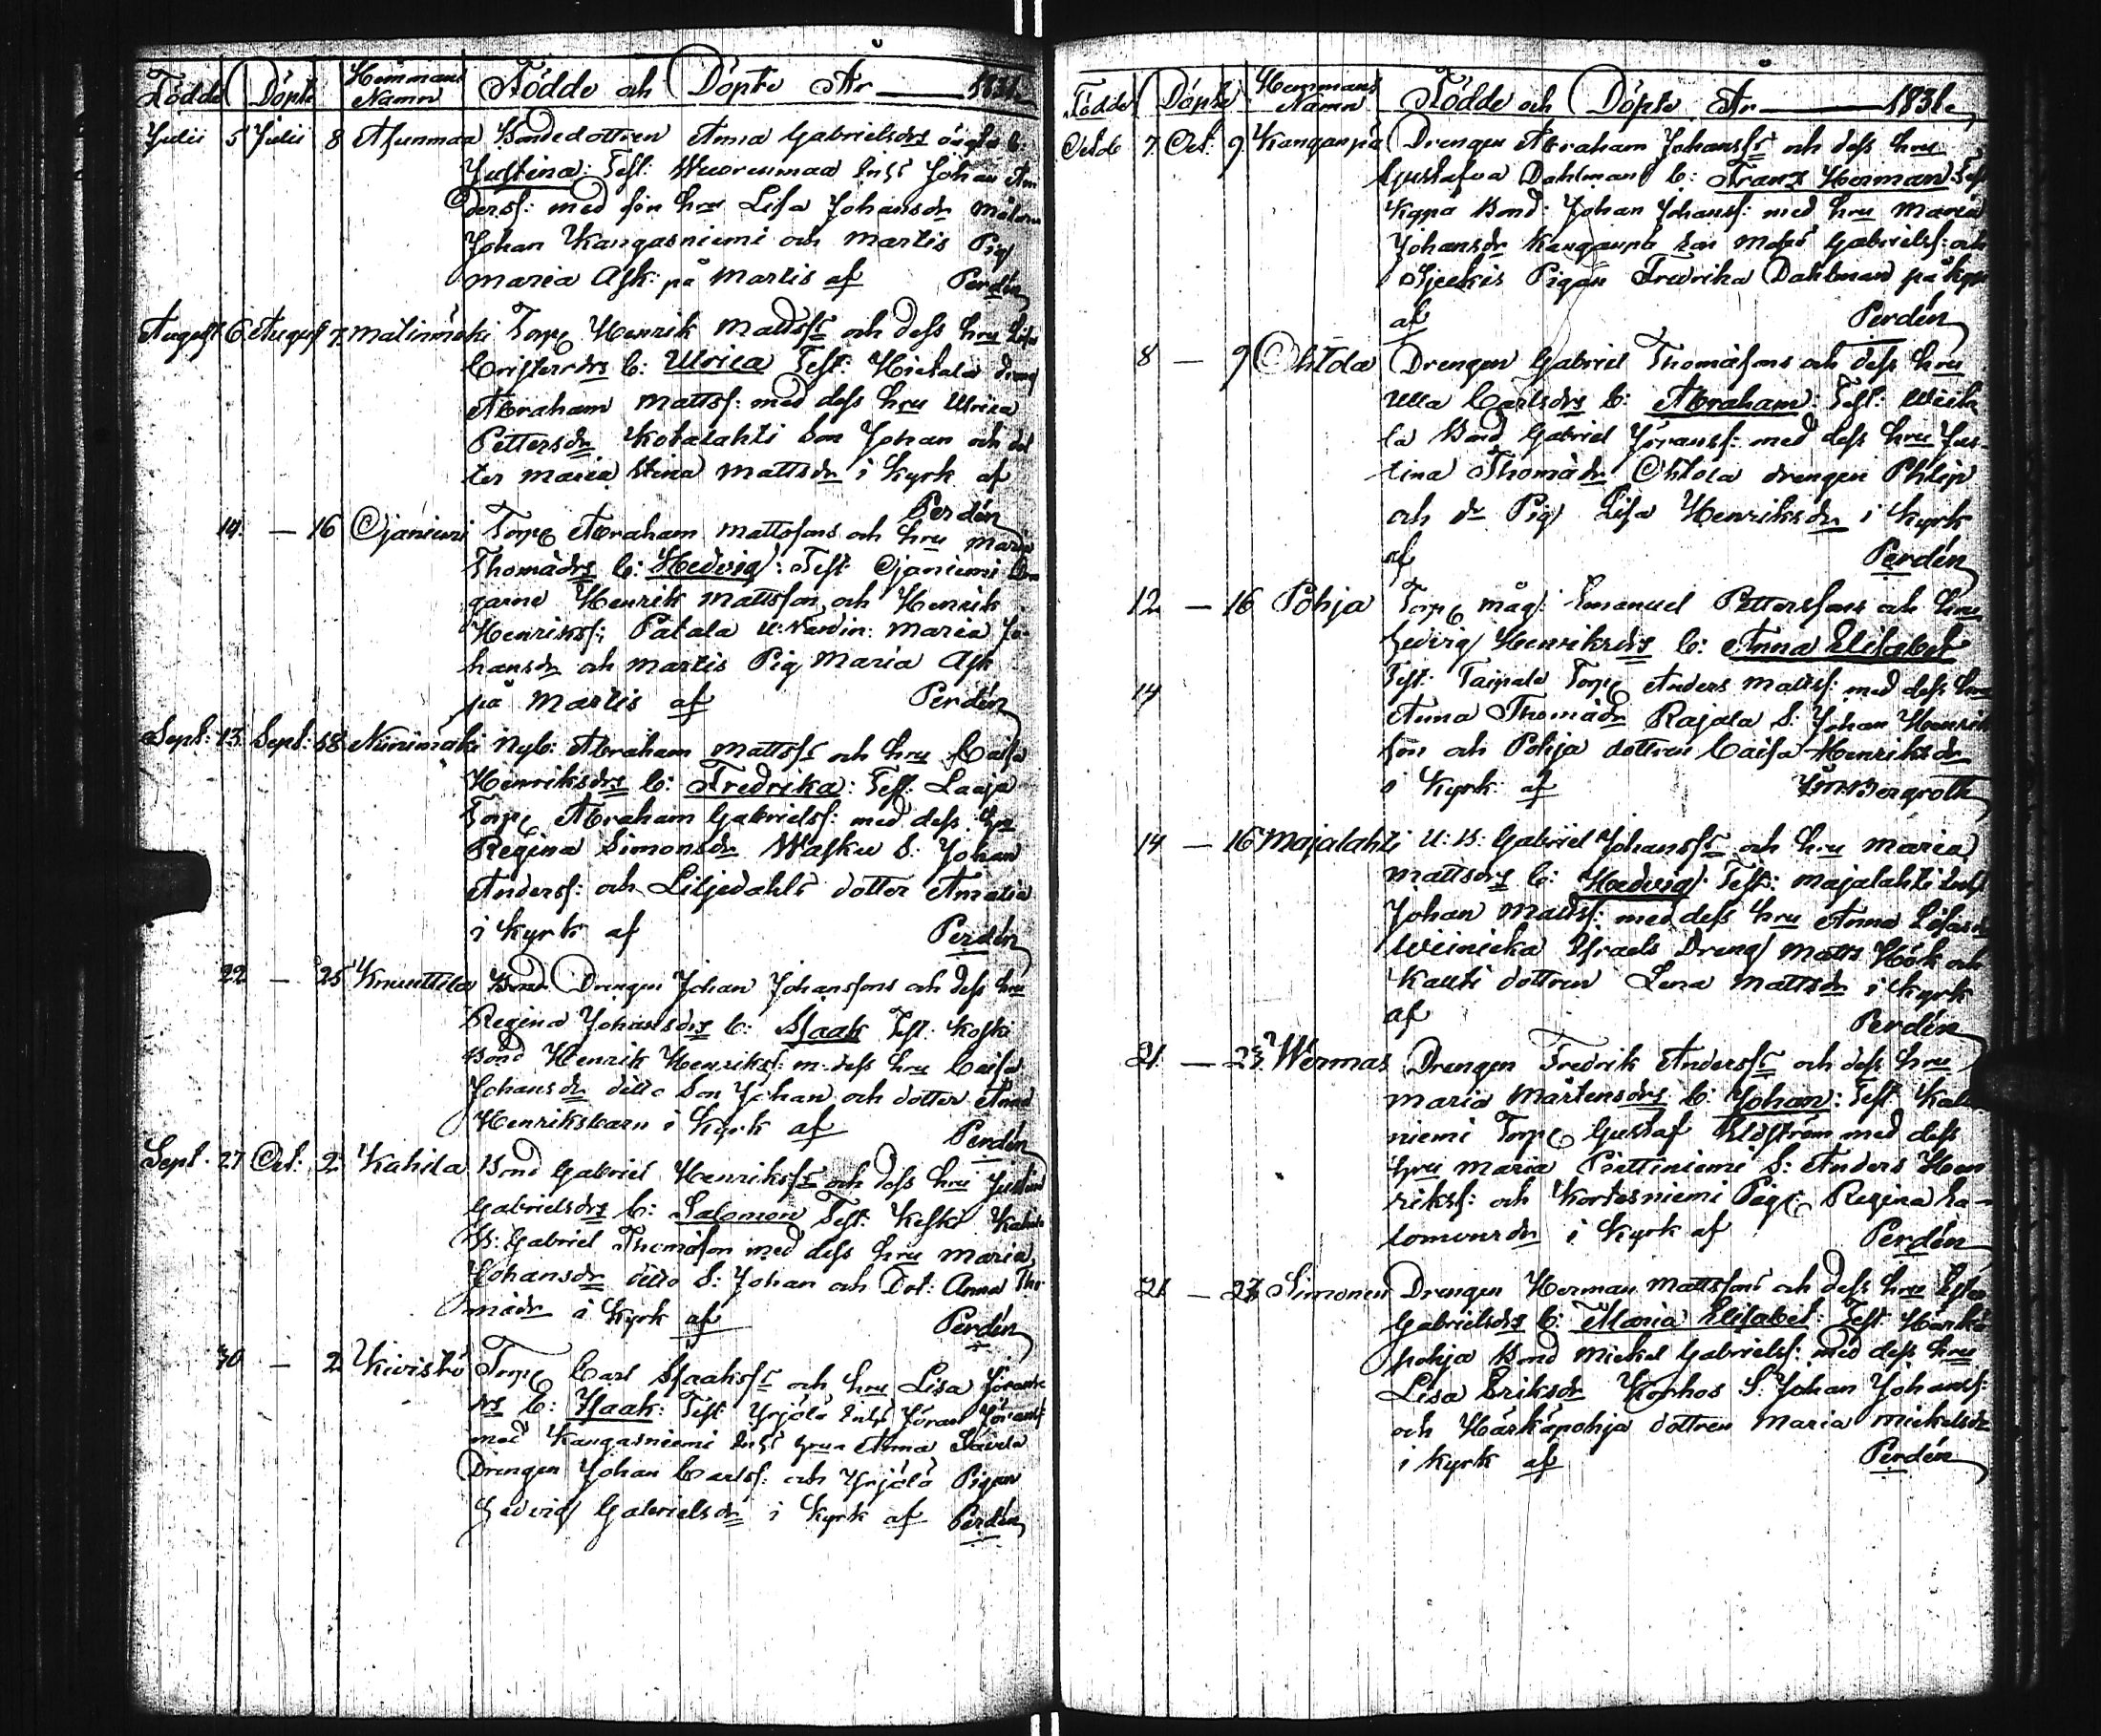 Födde Döpte Hemmans Namn Födde och Döpte År 1831.
Julii 5 Julii 8 Ahunmaa Bondedottren Anna Gabrielsdrs oägta b:
Justina: Test: Wuorenmaa Inhs Johan An
derss: med sin hru Lisa Johansdr
Johan Kangasniemi och Martis Pig
Maria Ask: på Martis af Perdén
August 6 August 7 Mälinmäki Torp Henrik Mattsss och dess hru Lisa
Christersdrs b: Ulrica Test: Hietala dreng
Abraham Mattss: med dess hru Ulrica
Pettersdr Kotalahti Son Johan och dot
ter Maria Stina Mattsdr i Kyrk af
Perdén
14 — 16 Ojaniemi Torp Abraham Mattssons och hru Maria
Thomädrs b: Hedvig: Test Ojaniemi
Henrik Mattsson och Henrik
Henrikss; Patala Maria Jo-
hansdr och Martis Pig Maria Ask
på Martis af Perdén
Sept: 13 Sept: 18 Niinimäki Nyb: Abraham Mattsss och hru Caisa
Henriksdrs b: Fredrika: Test: Laaja
Torp Abraham Gabrielss: med dess hru
Regina Simonsdr Wasku S: Johan
Anderss: och Liljedahls dotter Amalia
i Kyrk af Perdén
22 — 25 Knuuttila Drengen Johan Johanssons och dess hru
Regina Johansdrs b: Isaak Test: Koski
Bond Henrik Henrikss: m. dess hru Caisa
Johansdr ditto Son Johan och dotter Anna
Henriksbarn i Kyrk af Perdén
Sept. 27 Oct: 2 Kahila Bond Gabriel Henriksss och dess hru Justina
Gabrielsdrs b: Salomon Test: Keski Kahila
B: Gabriel Thomäson med dess hru Maria
Johansdr ditto S: Johan och Dot: Anna Tho
mädr i Kyrk af Perdén
30 — 2 Kivistö Torp Carl Isaaksss och hru Lisa Jörans
drs b: Isaak: Test Yrjölä Inhs Jöran Jöranss
med Kangasniemi Inhs hru Anna
Drengen Johan Carlss: och Yrjölä Pigan
Hedvig Gabrielsdr i Kyrk af Perdén
Födde Döpte Hemmans Namn Födde och Döpte År 1831.
Octob 7 Oct: 9 Kanganpä Drengen Abraham Johansss och dess hru
Gustafva Dahlmans b: Franz Herman Test
Kgpä Bond: Johan Johanss: med hru Maria
Johansdr Kanganpä Gabrielss: och
Sjeckis Pigan Fredrika Dahlman på Kgpä
af Perdén
8 — 9 Ohtola Drengen Gabriel Thomäsons och dess hru
Ulla Carlsdrs b: Abraham: Test: Wickla
la Bond Gabriel Jöranss: med dess hru Jus-
tina Thomädr Ohtola drengen Philip
och d:o Pig Lisa Henriksdr i Kyrk
af Perdén
12 — 16 Pohja Torp måg: Emanuel Petterssons och hru
Hedvig Henriksdrs b: Anna Elisabet
14 Test: Taipale Torp Anders Mattss: med dess hru
Anna Thomädr Rajala S: Johan Henrik
son och Pohja dottren Caisa Henriksdr
i Kyrk: af Bergroth
14 — 16 Majalahti U: B: Gabriel Johansss och hru Maria
Mattsdrs b: Hedvig: Test: Majalahti Inhs
Johan Mattss: med dess hru Anna
Weinicka Israels Dreng Matts Höök och
Kautti dottren Lena Mattsdr i Kyrk
af Perdén
21 — 23 Wermas Drengen Fredrik Andersss och dess hru
Maria Mårtensdrs b: Johan: Test
niemi Torp Gustaf med dess
hru Maria Pärttiniemi S: Anders Hen
rikss: och Kortesniemi Pig: Regina Sa-
lomonsdr i Kyrk af Perdén
21 — 23 Simonen Drengen Herman Mattssons och dess hru Ester
Gabrielsdrs b: Maria Elisabet: Test: Härkä
pohja Bond Mickel Gabrielss: med dess hru
Lisa Eriksdr Korhos S: Johan Johanss:
och Härkäpohja dottren Maria Mickelsdr
i Kyrk af Perdén